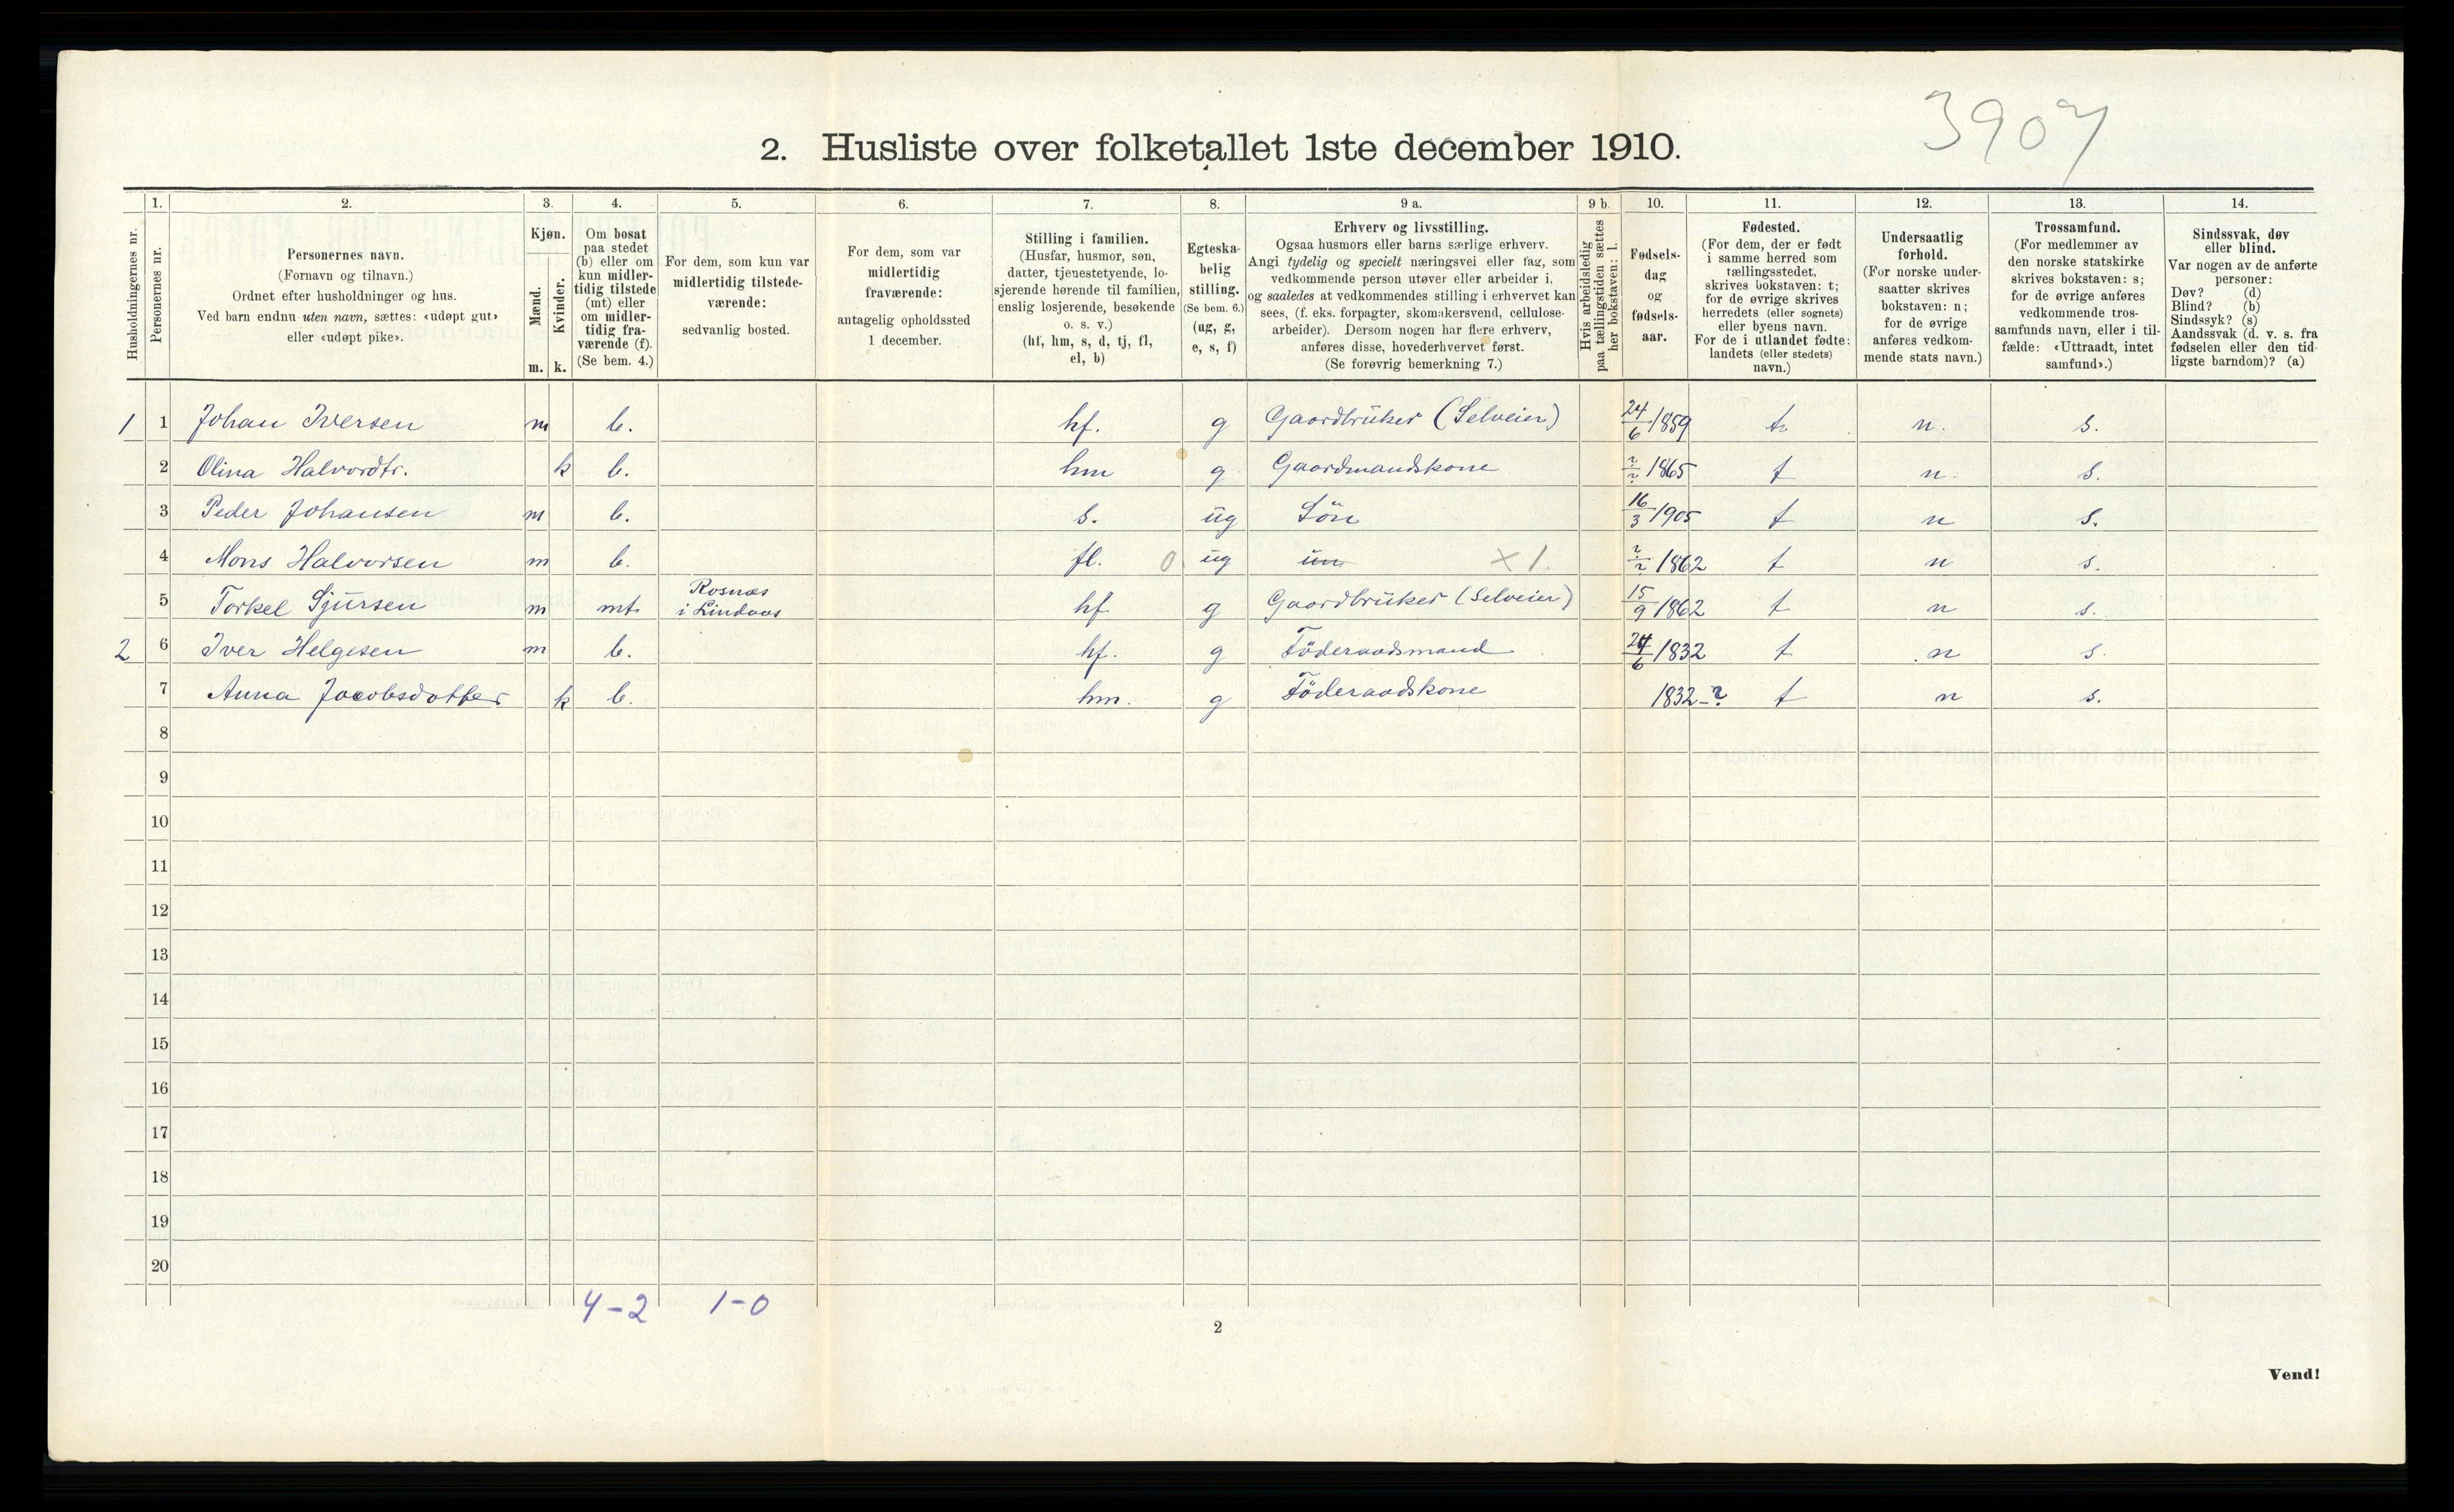 3907
2. Husliste over folketallet 1ste december 1910.
Husholdningernes nr.
1.
Personernes nr.
2.
Personernes navn.
(Fornavn og tilnavn.)
Ordnet efter husholdninger og hus.
Ved barn endnu uten navn, sættes: «udøpt gut»
eller «udøpt pike».
3.
Kjøn.
Mænd.
Kvinder.
m. k.
4.
Om bosat
paa stedet
(b) eller om
kun midler-
tidig tilstede
(mt) eller
om midler-
tidig fra-
værende (f).
(Se bem. 4.)
5.
For dem, som kun var
midlertidig tilstede-
værende:
sedvanlig bosted.
6.
For dem, som var
midlertidig
fraværende:
antagelig opholdssted
1 december.
7.
Stilling i familien.
(Husfar, husmor, søn,
datter, tjenestetyende, lo-
sjerende hørende til familien,
enslig losjerende, besøkende
o. s. v.)
(hf, hm, s, d, tj, fl,
el, b)
8.
Egteska-
belig
stilling.
(Se bem. 6.)
(ug, g,
e, s, f)
9 a.
Erhverv og livsstilling.
Ogsaa husmors eller barns særlige erhverv.
Angi tydelig og specielt næringsvei eller fag, som
vedkommende person utøver eller arbeider i,
og saaledes at vedkommendes stilling i erhvervet kan
sees, (f. eks. forpagter, skomakersvend, cellulose-
arbeider). Dersom nogen har flere erhverv,
anføres disse, hovederhvervet først.
(Se forøvrig bemerkning 7.)
9 b.
Hvis arbeidsledig
paa tællingstiden sættes
her bokstaven: l.
10.
Fødsels-
dag
og
fødsels-
aar.
11.
Fødested.
(For dem, der er født
i samme herred som
tællingsstedet,
skrives bokstaven: t;
for de øvrige skrives
herredets (eller sognets)
eller byens navn.
For de i utlandet fødte:
landets (eller stedets)
navn.)
12.
Undersaatlig
forhold.
(For norske under-
saatter skrives
bokstaven: n;
for de øvrige
anføres vedkom-
mende stats navn.)
13.
Trossamfund.
(For medlemmer av
den norske statskirke
skrives bokstaven: s;
for de øvrige anføres
vedkommende tros-
samfunds navn, eller i til-
fælde: «Uttraadt, intet
samfund».)
14.
Sindssvak, døv
eller blind.
Var nogen av de anførte
personer:
Døv? (d)
Blind? (b)
Sindssyk? (s)
Aandssvak (d. v. s. fra
fødselen eller den tid-
ligste barndom)? (a)
1 1 Johan Iversen m b. hf. g Gaardbruker (Selveier) 24/6 1859 t. n. s.
2 Olina Halvordtr. k b. hm g Gaardmandskone ?/? 1865 t n. s.
3 Peder Johansen m b. s. ug Sön 16/3 1905 t n s.
4 Mons Halvorsen m b. fl. 0 ug un X 1. ?/? 1862 t n s.
5 Torkel Sjursen m mt. Rosnæs
i Lindaas hf g Gaardbruker (Selveier) 15/9 1862 t n s.
2 6 Iver Helgesen m b. hf. g Föderaadsmand 24/6 1832 t n s.
7 Anna Jacobsdotter k b. hm. g Föderaadskone 1832-? t n s.
8
9
10
11
12
13
14
15
16
17
18
19
20
4-2 1-0
2
Vend!